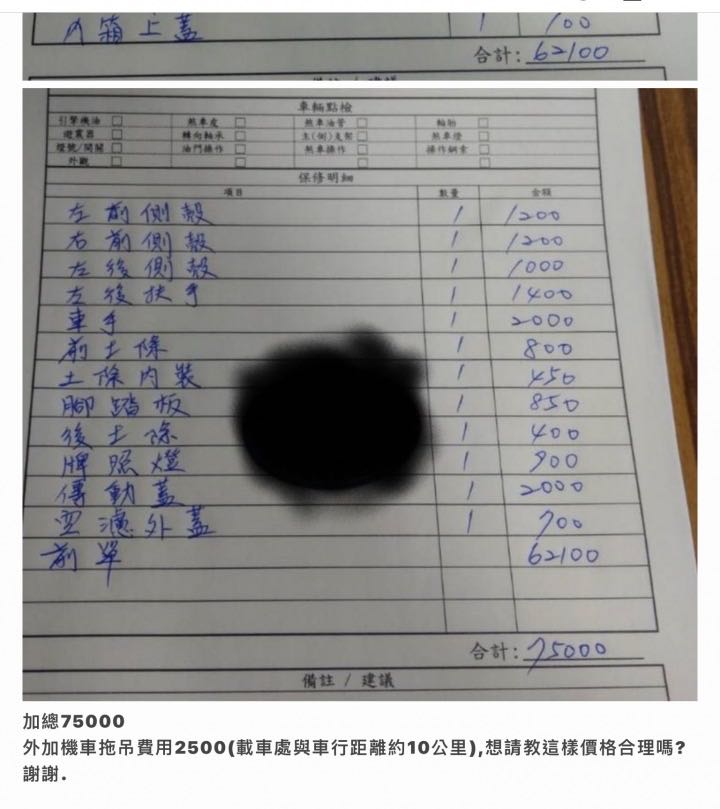 內箱上蓋 1 700
合計: 62100
車輛點檢
引擎機油 煞車皮 煞車油管 輪胎
避震器 轉向軸承 主(側)支架 煞車燈
燈號/開關 油門操作 煞車操作 操作鋼索
外觀
保修明細
項目 數量 金額
左前側殼 1 1200
右前側殼 1 1200
左後側殼 1 1000
左後扶手 1 1400
車手 1 2000
前土除 1 800
土除內裝 1 450
腳踏板 1 850
後土除 1 400
牌照燈 1 900
傳動蓋 1 2000
空濾外蓋 1 700
前單 62100
合計: 75000
備註 / 建議
加總75000
外加機車拖吊費用2500(載車處與車行距離約10公里),想請教這樣價格合理嗎?
謝謝.